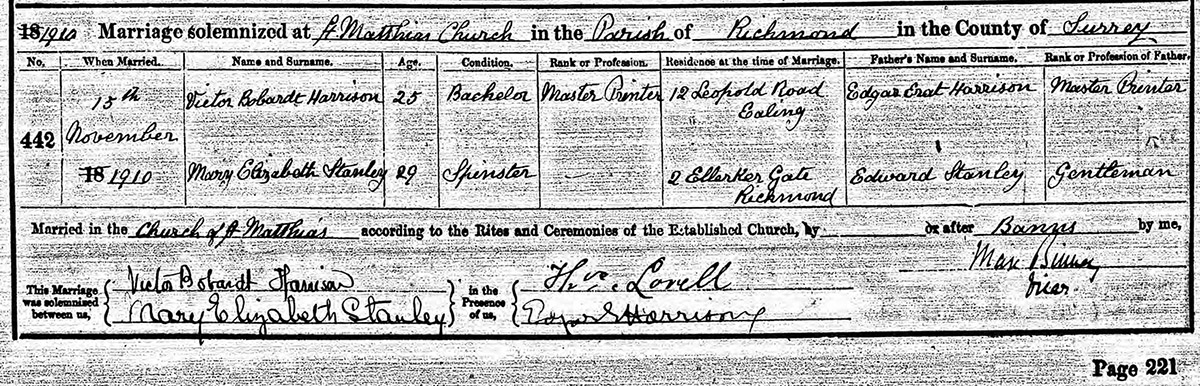 18 1910 Marriage solemnized at St Matthias Church in the Parish of Richmond in the County of Surrey
No. When Married. Name and Surname. Age. Condition. Rank or Profession. Residence at the time of Marriage. Father's Name and Surname. Rank or Profession of Father.
15th Victor Bobardt Harrison 25 Bachelor Master Printer 12 Leopold Road Edgar Erat Harrison Master Printer
Ealing
442 November
18 1910 Mary Elizabeth Stanley 29 Spinster — 2 Ellerker Gate Edward Stanley Gentleman
Richmond
Married in the Church of St Matthias according to the Rites and Ceremonies of the Established Church, by or after Banns by me,
This Marriage was solemnized between us, Victor Bobardt Harrison in the Presence of us, Thos. Lovell Max Binney
Mary Elizabeth Stanley Edgar E Harrison Vicar.
Page 221